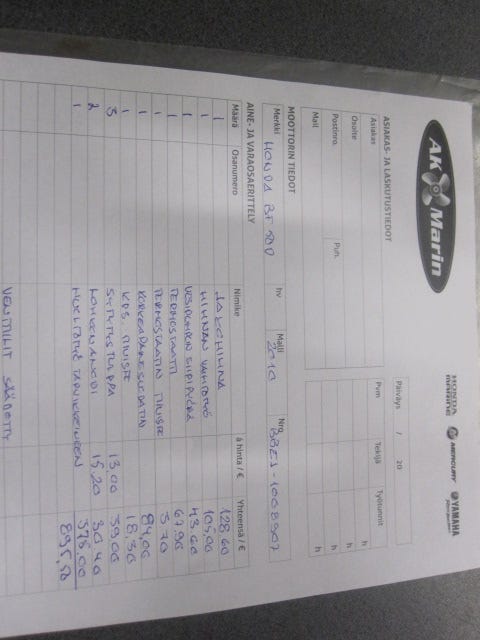 AK Marin
HONDA MARINE MERCURY YAMAHA
ASIAKAS- JA LASKUTUSTIEDOT
Päiväys / 20
Asiakas
Osoite
Postinro. Puh.
Mail
Pvm Tekijä Työtunnit
h
h
h
h
MOOTTORIN TIEDOT
Merkki HONDA BF 50D hv Malli 2010 Nro. BBEJ-1008907
AINE- JA VARAOSAERITTELY
Määrä Osanumero Nimike à hinta / € Yhteensä / €
1 JAKOHIHNA 128,60
1 HIHNAN VAIHTOTYÖ 105,00
1 VESIPUMPUN SIIPIPYÖRÄ 43,60
1 TERMOSTAATTI 67,90
1 TERMOSTAATIN TIIVISTE 3,70
1 KORKEAPAINESUODATIN 84,00
1 KPS. TIIVISTE 18,30
3 SYTYTYSTULPPA 13,00 39,00
2 LOHKON ANODI 15,20 30,40
1 HUOLTOTYÖ TARVIKKEINEEN 375,00
895,50
VENTTIILIT SÄÄDETTY